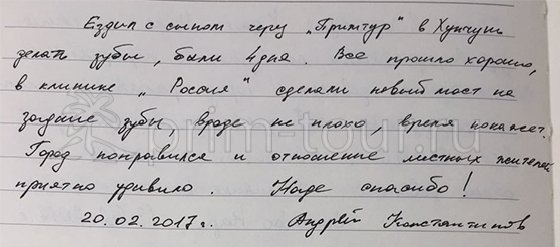 Ездил с сыном через „Примтур" в Хунчунь
делать зубы, были 4 дня. Все прошло хорошо,
в клинике „Россия" сделали новый мост на
задние зубы, вроде не плохо, время покажет.
Город понравился и отношение местных жителей
приятно удивило. Наде спасибо!
20.02.2017г. Андрей Константинов
prim-tour.ru